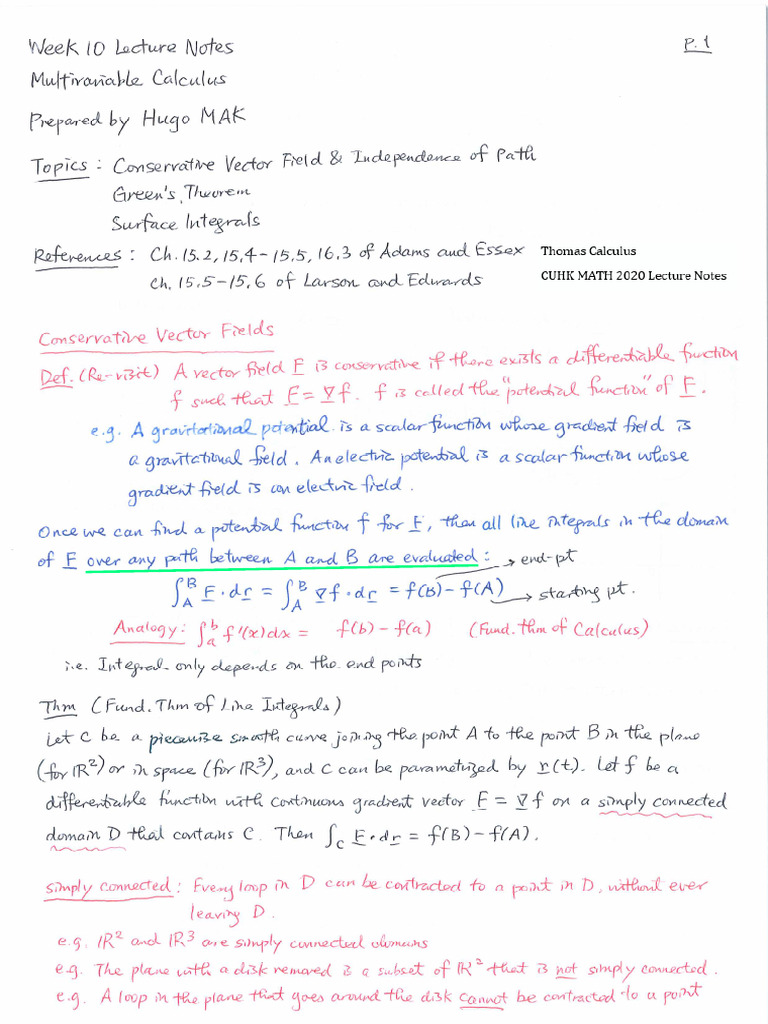 Week 10 Lecture Notes
P.1
Multivariable Calculus
Prepared by Hugo MAK
Topics : Conservative Vector Field & Independence of Path
Green's Theorem
Surface Integrals
References : Ch. 15.2, 15.4-15.5, 16.3 of Adams and Essex Thomas Calculus
Ch. 15.5-15.6 of Larson and Edwards CUHK MATH 2020 Lecture Notes
Conservative Vector Fields
Def. (Re-visit) A vector field F is conservative if there exists a differentiable function
f such that F = ∇f. f is called the "potential function" of F.
e.g. A gravitational potential is a scalar function whose gradient field is
a gravitational field. An electric potential is a scalar function whose
gradient field is an electric field.
Once we can find a potential function f for F, then all line integrals in the domain
of F over any path between A and B are evaluated :
→ end-pt
∫_A^B F·dr = ∫_A^B ∇f·dr = f(B) - f(A) → starting pt.
Analogy: ∫_a^b f'(x)dx = f(b) - f(a) (Fund. Thm of Calculus)
i.e. Integral only depends on the end points
Thm (Fund. Thm of Line Integrals)
Let C be a piecewise smooth curve joining the point A to the point B in the plane
(for ℝ²) or in space (for ℝ³), and C can be parametrized by r(t). Let f be a
differentiable function with continuous gradient vector F = ∇f on a simply connected
domain D that contains C. Then ∫_C F·dr = f(B) - f(A).
simply connected : Every loop in D can be contracted to a point in D, without ever
leaving D.
e.g. ℝ² and ℝ³ are simply connected domains
e.g. The plane with a disk removed is a subset of ℝ² that is not simply connected.
e.g. A loop in the plane that goes around the disk cannot be contracted to a point